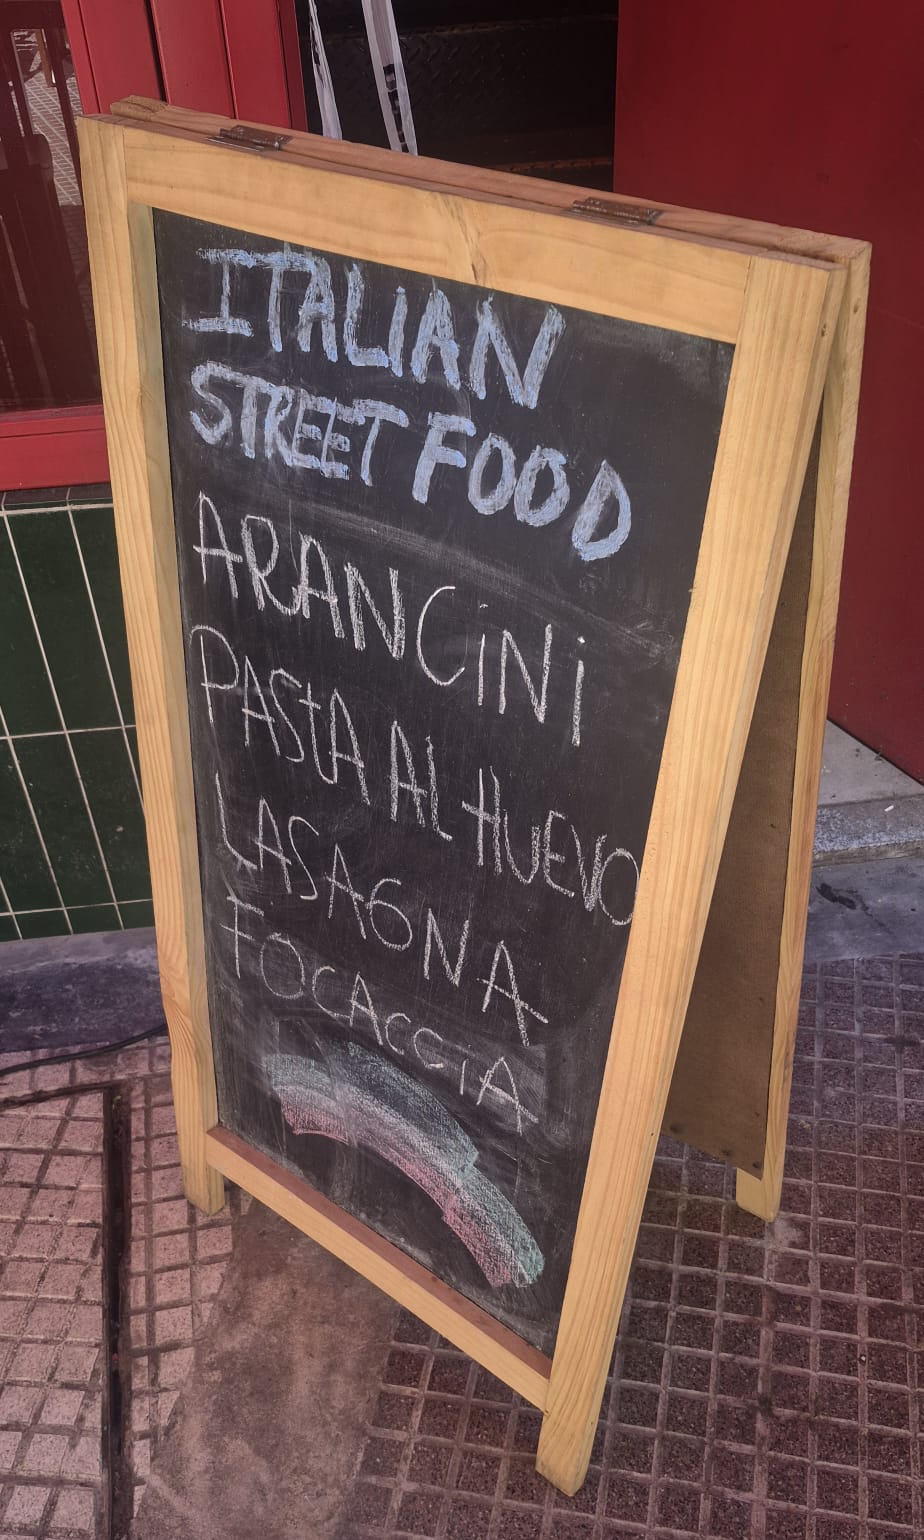 ITALIAN
STREET FOOD
ARANCiNi
PASTA AL HUEVO
LASAGNA
FOCACCIA